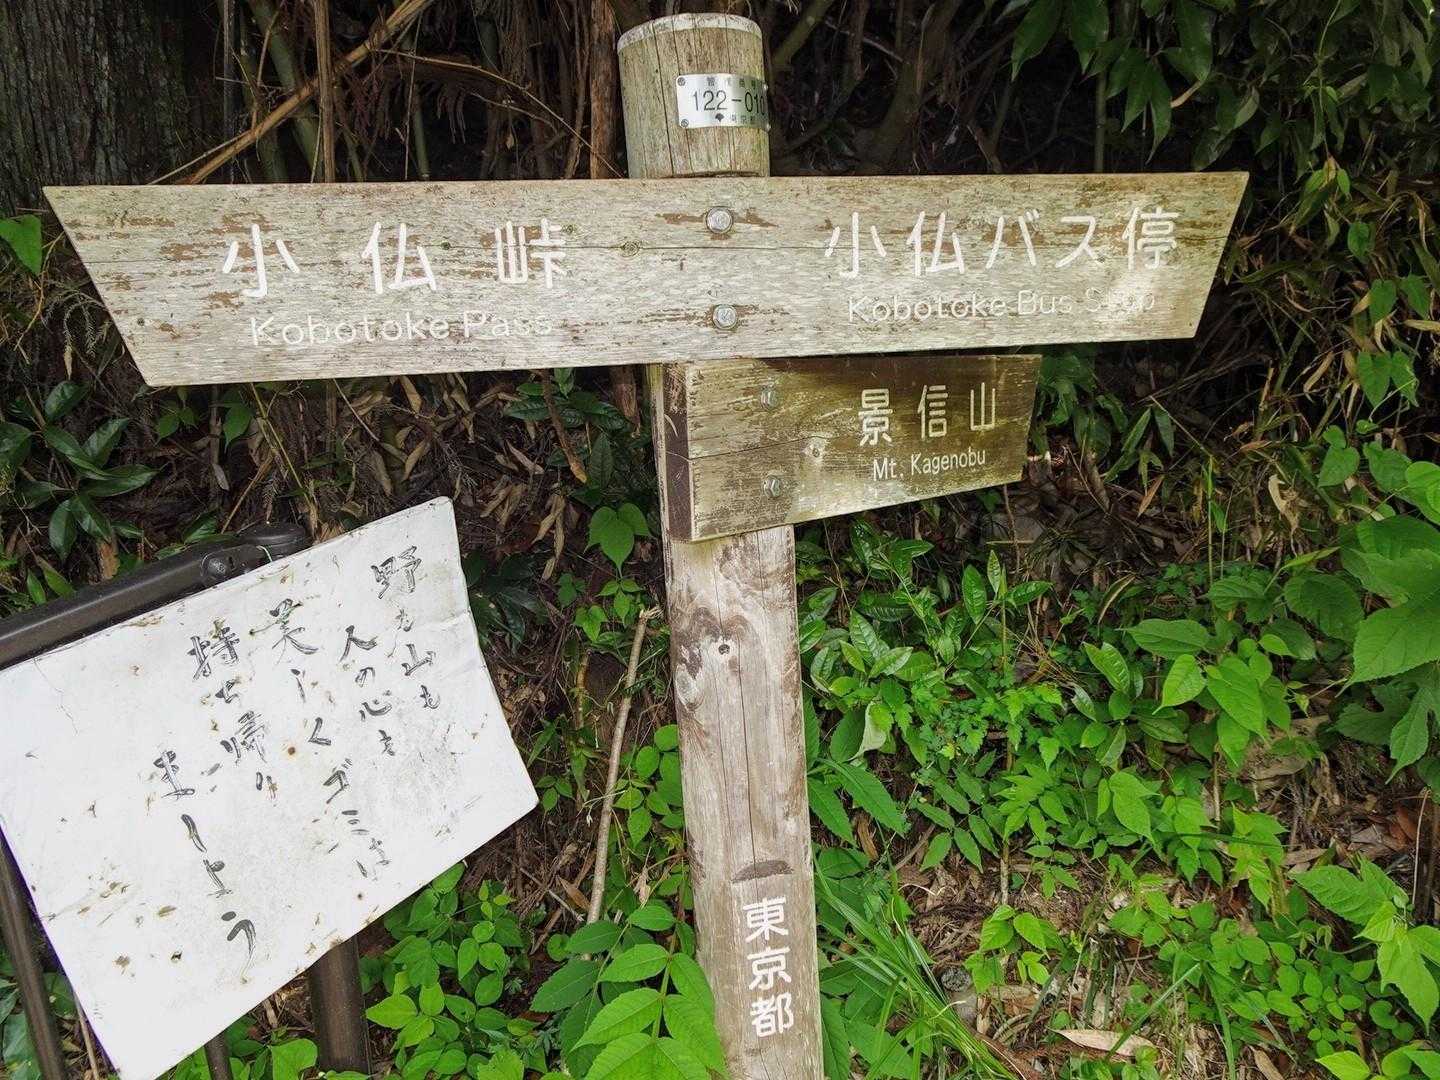 122-010
小仏峠
Kobotoke Pass
小仏バス停
Kobotoke Bus Stop
景信山
Mt. Kagenobu
東京都
野も山も
人の心も
美しくゴミは
持ち帰り
ましょう